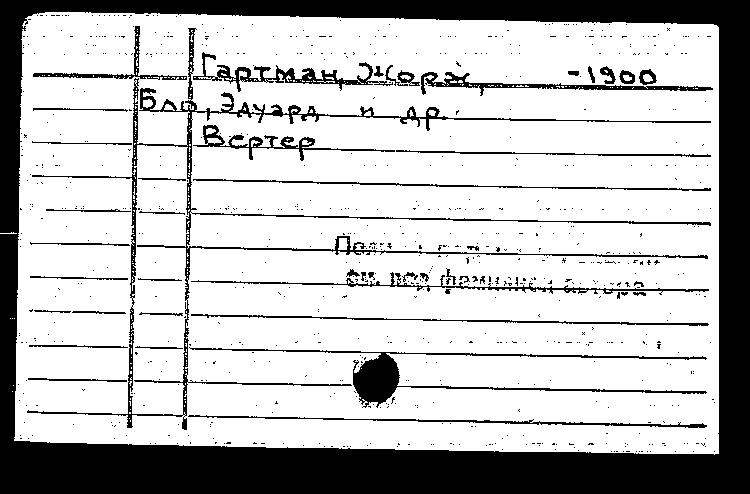 Гартман, Жорж, -1900
Бло, Эдуард и др.
Вертер
см. под фамилией автора